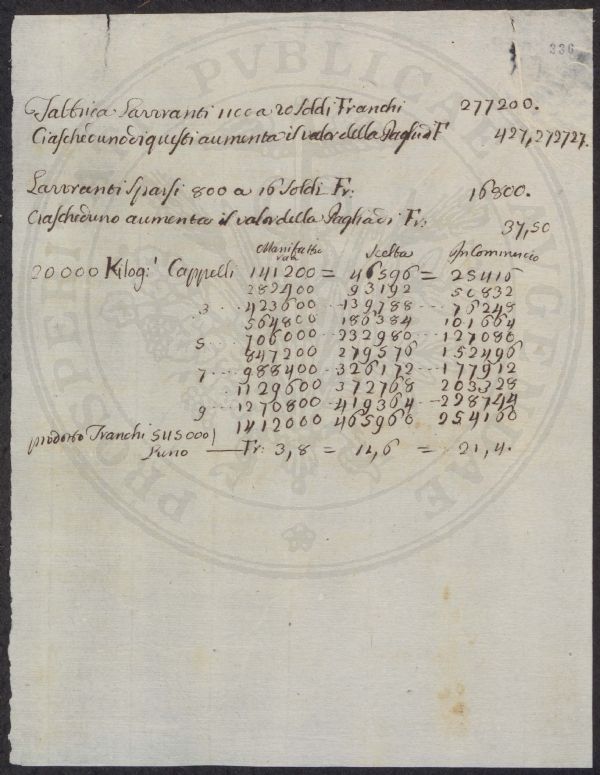 336
PROSPERITATI PVBLICAE AVGENDAE
Fabbrica Lavoranti 1100 a 20 Soldi Franchi 277200.
Ciascheduno di questi aumenta il valor della Paglia di F 427,272727.
Lavoranti Sparsi 800 a 16 Soldi Fr: 16800.
Ciascheduno aumenta il valor della Paglia di Fr: 37,50
Manifattu Scelta In Commercio
rati
20000 Kilog:ⁱ Cappelli 141200 = 46596 = 25416
282400 93192 50832
3 423600 139788 76248
564800 186384 101664
5 706000 232980 127080
847200 279576 152496
7 988400 326172 177912
1129600 372768 203328
9 1270800 419364 228744
1412000 465960 254160
prodotto Franchi 515000
l'uno — Fr: 3,8 = 14,6 = 21,4.